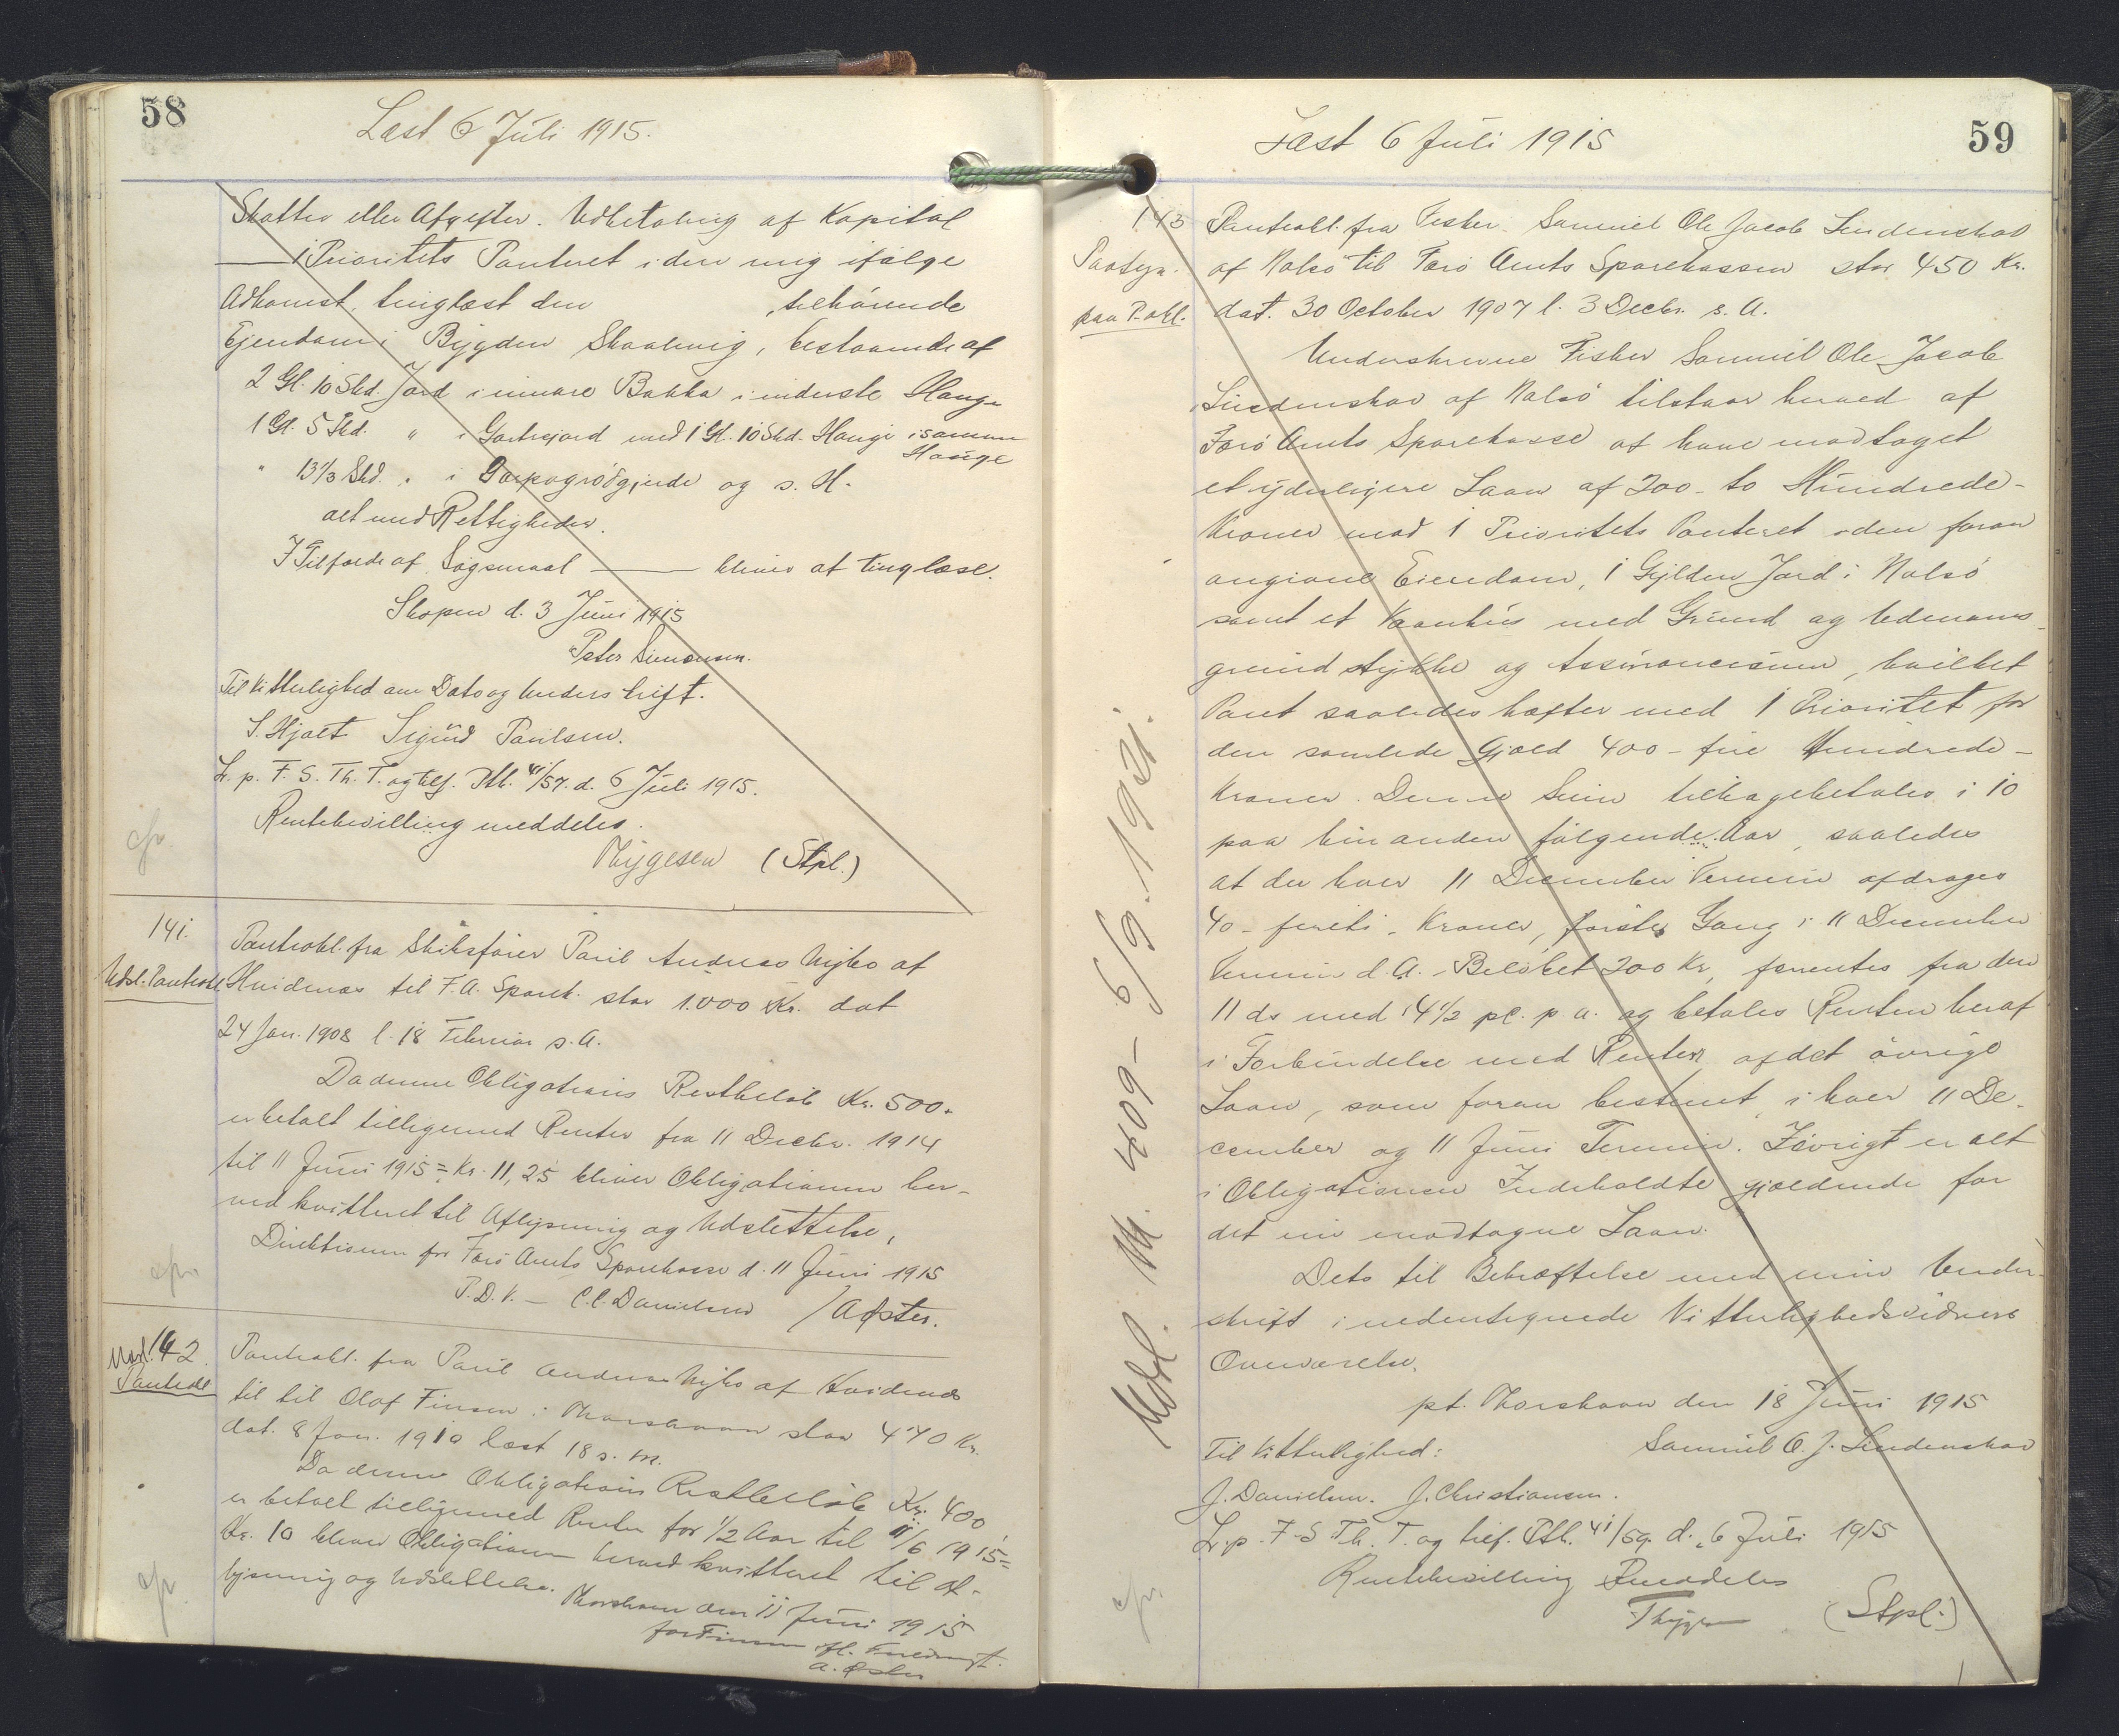 58
Læst 6 Juli 1915.
Skatter eller Afgifter. Udbetaling af Kapital
— 1 Prioritets Panteret i den mig ifølge
Adkomst, tinglæst den , tilhørende
Ejendom i Bygden Skaalevig, bestaaende af
2 Gl. 10 Skd. Jord i innare Bakka i inderste Hauge
1 Gl. 5 Skd. " i Gartsejard med 1 Gl. 10 Skd. Hauge i samme
Hauge
" 13 1/3 Skd. " i og s. H.
alt med Rettigheder.
I Tilfælde af Søgsmaal — bliver at tinglæse.
Skopen d. 3 Juni 1915
Peter Simonsen.
Til Vitterlighed om Dato og Underskrift.
S. Hjalt Sigurd Paulsen.
L. p. F. S. Th. T. og tilf. Ptb. 41/57. d. 6 Juli 1915.
Rentebevilling meddeles.
cfr.
Thygesen (Stpl.)
141.
Udsl. Panteobl.
Panteobl. fra Skibsfører Paul Andreas Nybo af
Hvidenæs til F. A. Spark. stor 1.000 Kr. dat
24 Jan. 1908 l. 18 Februar s. A.
Da denne Obligations Restbeløb Kr. 500.
er betalt tilligemed Renter fra 11 Decbr. 1914
til 11 Juni 1915 = Kr. 11,25 bliver Obligationen her-
ved kvitteret til Aflysning og Udslettelse,
Direktionen for Færø Amts Sparekasse d. 11 Juni 1915
P.D.V. — C.C. Danielsen / A Øster.
cfr.
142.
Panteobl
Panteobl. fra Paul Andreas Nybo af Hvidenæs
til til Olaf Finsen i Thorshavn stor 470 Kr.
dat. 8 Jan. 1910 læst 18 s. M.
Da denne Obligations Restbeløb Kr. 400
er betalt tilligemed Renter for 1/2 Aar til 11/6 1915 =
Kr. 10 bliver Obligationen herved kvitteret til Af-
lysning og Udslettelse.
Thorshavn den 11 Juni 1915
for Finsen efl. Fuldmagt.
A. Øster
cfr.
59
Læst 6 Juli 1915
143
Paategn.
paa P.obl.
Panteobl. fra Fisker Samuel Ole Jacob Lindenskov
af Nolsø til Færø Amts Sparekassen stor 450 Kr.
dat. 30 October 1907 l. 3 Decbr. s. A.
Underskrevne Fisker Samuel Ole Jacob
Lindenskov af Nolsø tilstaar herved af
Færø Amts Sparekasse at have modtaget
et yderligere Laan af 200 - to Hundrede -
Kroner mod 1 Prioritets Panteret i den foran
angivne Eiendom, 1 Gylden Jord i Nolsø
samt et Vaanhus med Grund og Udenoms-
grundstykke og Assurancesum, hvilket
Pant saaledes hæfter med 1 Prioritet for
den samlede Gjæld 400 - fire Hundrede -
Kroner. Denne Sum tilbagebetales i 10
paa hinanden følgende Aar, saaledes
at der hver 11 December Termin afdrages
40 - fireti - Kroner, første Gang i 11 December
Termin d. A. Beløbet 200 Kr. forrentes fra den
11 ds med 4 1/2 pC. p. a. og betales Renten heraf
i Forbindelse med Renten af det øvrige
Laan, som foran bestemt, i hver 11 De-
cember og 11 Juni Termin. Iøvrigt er alt
i Obligationen Indeholdte gjældende for
det nu modtagne Laan.
Dets til Bekræftelse med min Under-
skrift i nedentegnede Vitterlighedsvidners
Overværelse.
pt. Thorshavn den 18 Juni 1915
Til Vitterlighed: Samuel O. J. Lindenskov
J. Danielsen. J. Christiansen.
L. p. F. S Th. T. og tilf. Ptb. 41/59. d. 6 Juli 1915
Rentebevilling meddeles
Thygesen (Stpl.)
cfr.
Udsl. M. 409 - 6/9. 1921.